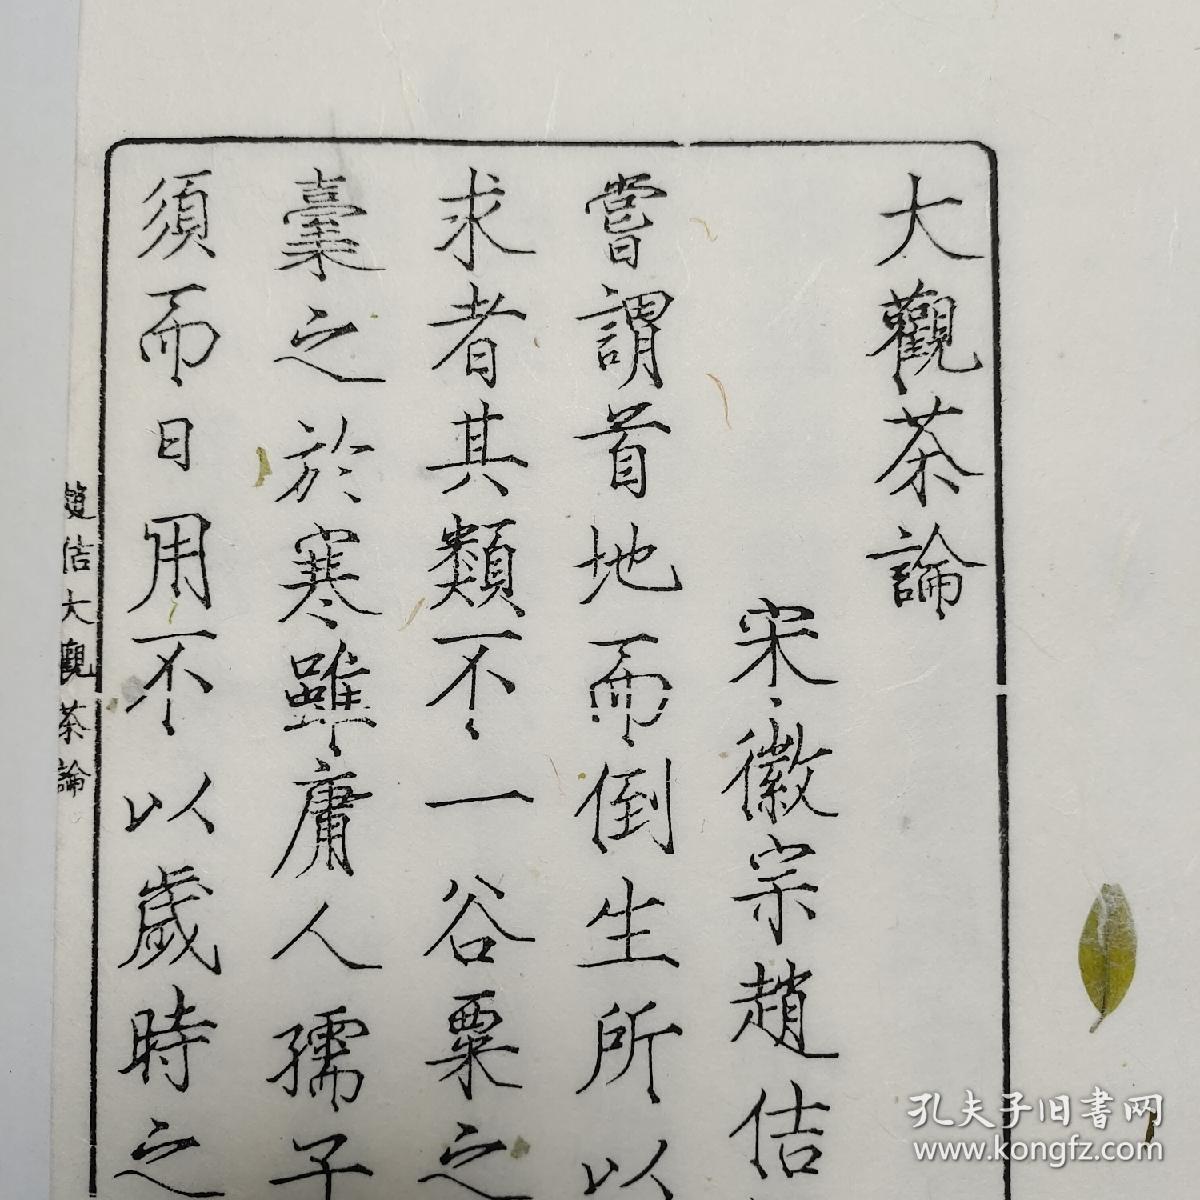 大觀茶論
宋徽宗趙佶
嘗謂首地而倒生所以
求者其類不一谷粟之
之於寒雖庸人孺子
須而日用不以歲時之
趙佶大觀茶論
孔夫子旧書网
www.kongfz.com